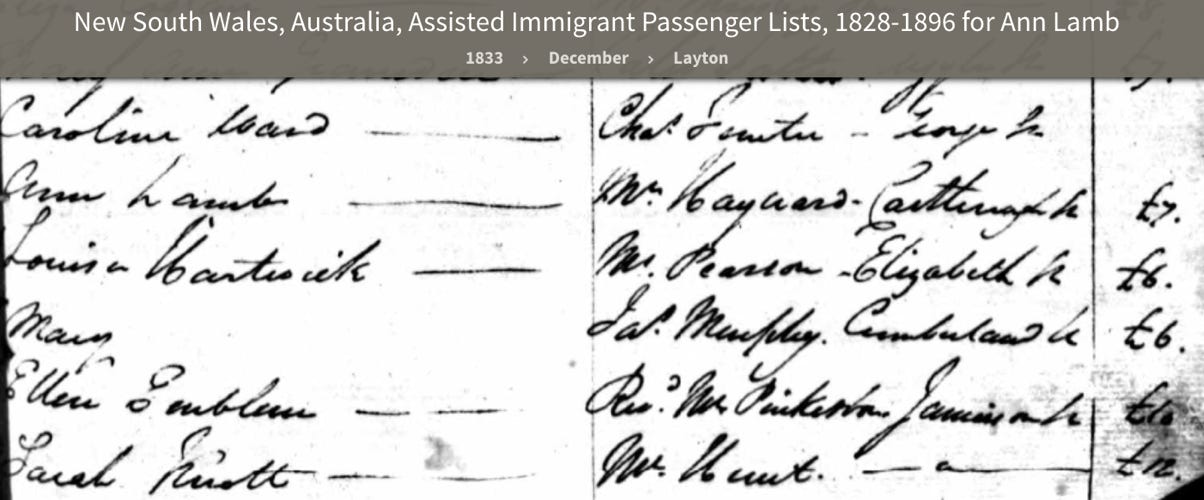 New South Wales, Australia, Assisted Immigrant Passenger Lists, 1828-1896 for Ann Lamb
1833 › December › Layton
Caroline Ward — Chas. - George St
Ann Lamb — Mr. Hayward - Castlereagh St £7.
Louisa Hartwick — Mr. Pearson - Elizabeth St £6.
Mary Jas. Murphy. Cumberland St £6.
Ellen Emblem — — Revd. Mr Pinkerton Jamison St
Sarah Knott — — Mr. Hunt. — £12.